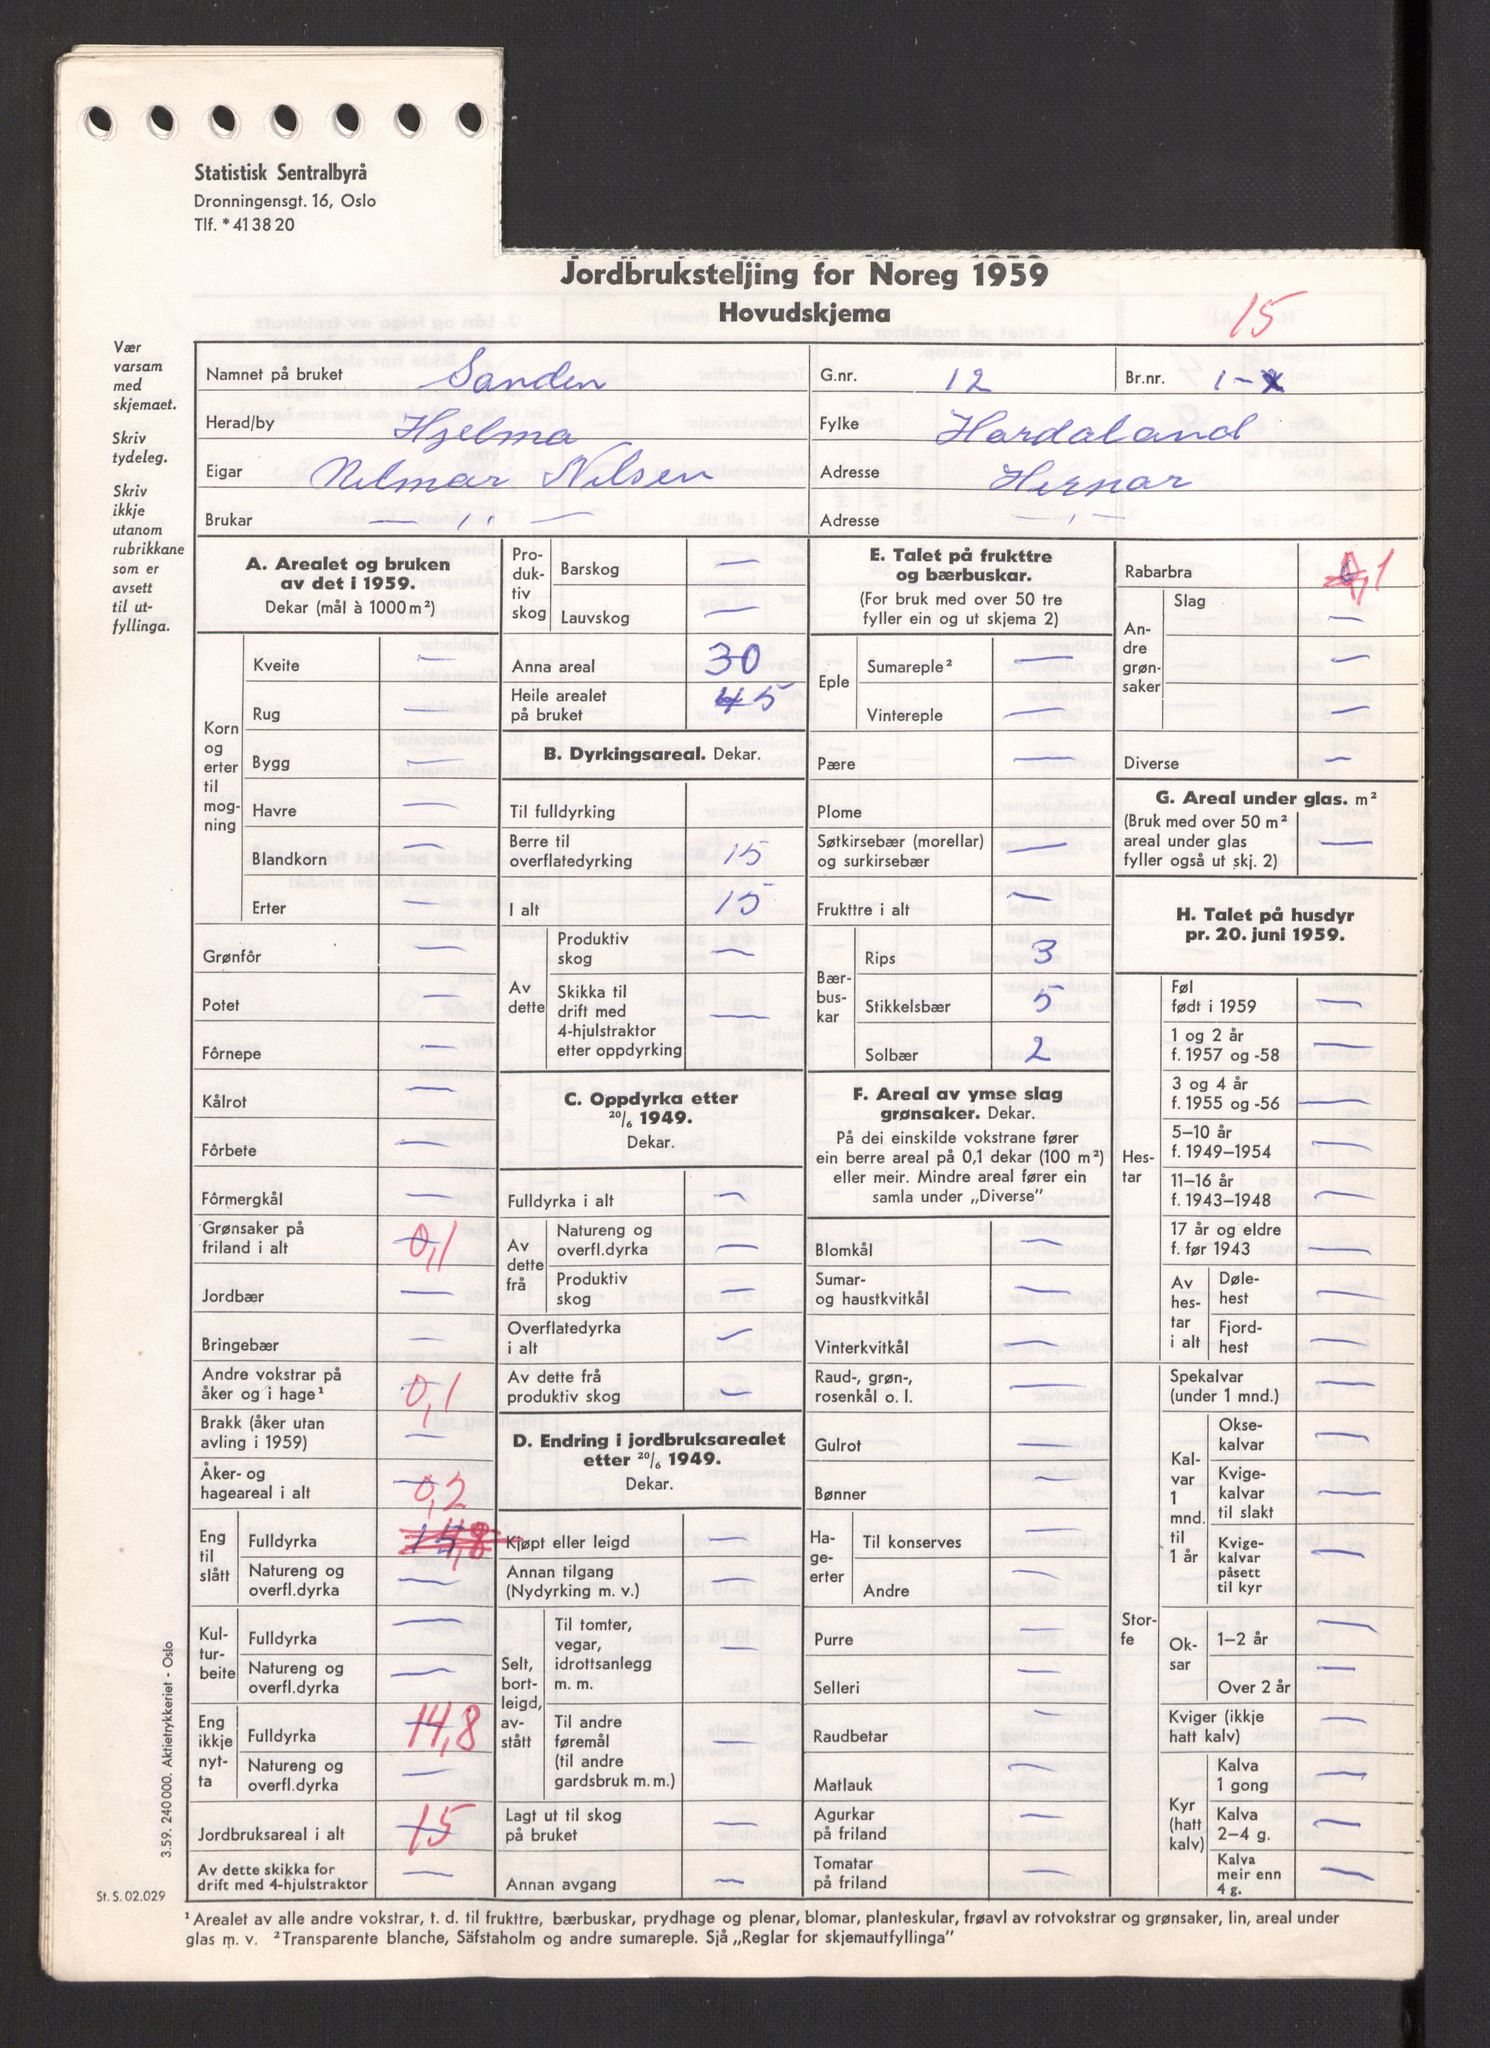 Statistisk Sentralbyrå
Dronningensgt. 16, Oslo
Tlf. *41 38 20
Jordbruksteljing for Noreg 1959
Hovudskjema
15
Vær
varsam
med
skjemaet.
Skriv
tydeleg.
Skriv
ikkje
utanom
rubrikkane
som er
avsett
til ut-
fyllinga.
Namnet på bruket Sanden G.nr. 12 Br.nr. 1-
Herad/by Hjelma Fylke Hordaland
Eigar Nilsen Adresse Hernar
Brukar — „ — Adresse — „ —
A. Arealet og bruken
av det i 1959.
Dekar (mål à 1000 m²)
Korn
og
erter
til
mog-
ning
Kveite —
Rug —
Bygg —
Havre —
Blandkorn —
Erter —
Grønfôr —
Potet —
Fôrnepe —
Kålrot —
Fôrbete —
Fôrmergkål —
Grønsaker på
friland i alt 0,1
Jordbær —
Bringebær —
Andre vokstrar på
åker og i hage¹ 0,1
Brakk (åker utan
avling i 1959) —
Åker- og
hageareal i alt 0,2
Eng
til
slått
Fulldyrka
Natureng og
overfl.dyrka —
Kul-
tur-
beite
Fulldyrka —
Natureng og
overfl.dyrka —
Eng
ikkje
nyt-
ta
Fulldyrka 14,8
Natureng og
overfl.dyrka —
Jordbruksareal i alt 15
Av dette skikka for
drift med 4-hjulstraktor —
Pro-
duk-
tiv
skog
Barskog —
Lauvskog —
Anna areal 30
Heile arealet
på bruket 45
B. Dyrkingsareal. Dekar.
Til fulldyrking
Berre til
overflatedyrking 15
I alt 15
Av
dette
Produktiv
skog —
Skikka til
drift med
4-hjulstraktor
etter oppdyrking —
C. Oppdyrka etter
20/6 1949.
Dekar.
Fulldyrka i alt —
Av
dette
frå
Natureng og
overfl.dyrka —
Produktiv
skog —
Overflatedyrka
i alt —
Av dette frå
produktiv skog —
D. Endring i jordbruksarealet
etter 20/6 1949.
Dekar.
Kjøpt eller leigd —
Annan tilgang
(Nydyrking m. v.) —
Selt,
bort-
leigd,
av-
stått
Til tomter,
vegar,
idrottsanlegg
m. m. —
Til andre
føremål
(til andre
gardsbruk m. m.) —
Lagt ut til skog
på bruket —
Annan avgang —
E. Talet på frukttre
og bærbuskar.
(For bruk med over 50 tre
fyller ein og ut skjema 2)
Eple
Sumareple² —
Vintereple —
Pære —
Plome
Søtkirsebær (morellar)
og surkirsebær —
Frukttre i alt —
Bær-
bus-
kar
Rips 3
Stikkelsbær 5
Solbær 2
F. Areal av ymse slag
grønsaker. Dekar.
På dei einskilde vokstrane fører
ein berre areal på 0,1 dekar (100 m²)
eller meir. Mindre areal fører ein
samla under „Diverse”
Blomkål —
Sumar-
og haustkvitkål —
Vinterkvitkål —
Raud-, grøn-,
rosenkål o. l. —
Gulrot —
Bønner —
Ha-
ge-
erter
Til konserves —
Andre —
Purre —
Selleri —
Raudbetar —
Matlauk —
Agurkar
på friland —
Tomatar
på friland —
Rabarbra 0,1
An-
dre
grøn-
saker
Slag
—
—
—
Diverse —
G. Areal under glas. m²
(Bruk med over 50 m²
areal under glas
fyller også ut skj. 2) —
H. Talet på husdyr
pr. 20. juni 1959.
Hes-
tar
Føl
født i 1959 —
1 og 2 år
f. 1957 og -58 —
3 og 4 år
f. 1955 og -56 —
5–10 år
f. 1949–1954 —
11–16 år
f. 1943–1948 —
17 år og eldre
f. før 1943 —
Av
hes-
tar
i alt
Døle-
hest —
Fjord-
hest —
Stor-
fe
Spekalvar
(under 1 mnd.) —
Kal-
var
1
mnd.
til
1 år
Okse-
kalvar —
Kvige-
kalvar
til slakt —
Kvige-
kalvar
påsett
til kyr —
Ok-
sar
1–2 år —
Over 2 år —
Kviger (ikkje
hatt kalv) —
Kyr
(hatt
kalv)
Kalva
1 gong —
Kalva
2–4 g. —
Kalva
meir enn
4 g. —
3.59. 240 000. Aktietrykkeriet - Oslo
St. S. 02.029
¹ Arealet av alle andre vokstrar, t. d. til frukttre, bærbuskar, prydhage og plenar, blomar, planteskular, frøavl av rotvokstrar og grønsaker, lin, areal under
glas m. v. ² Transparente blanche, Säfstaholm og andre sumareple. Sjå „Reglar for skjemautfyllinga”